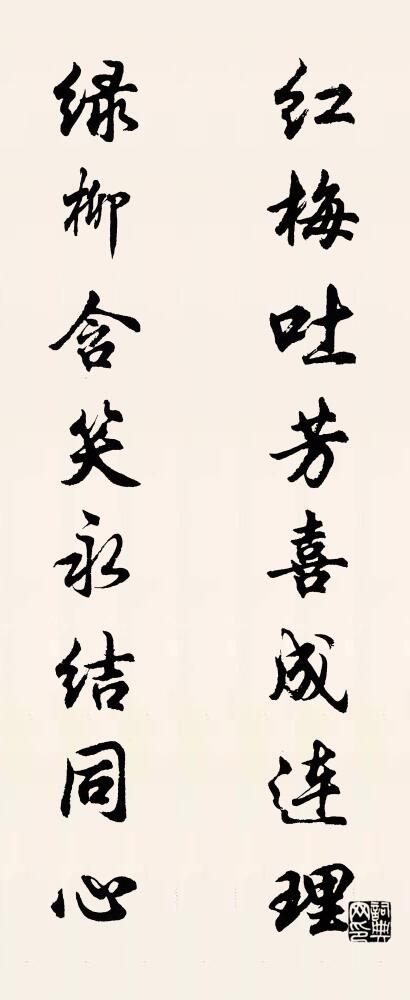 红梅吐芳喜成连理
绿柳含笑永结同心
詞典网印